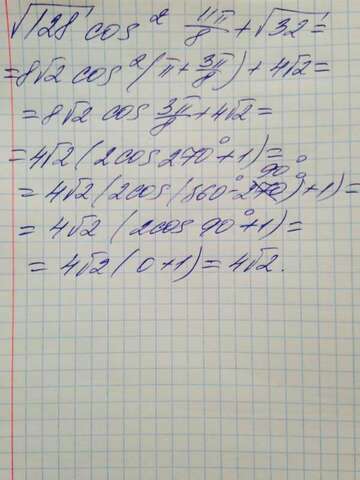 √128 cos² 11π/8 + √32 =
= 8√2 cos² (π + 3π/8) + 4√2 =
= 8√2 cos 3π/8 + 4√2 =
= 4√2 (2cos 270° + 1) =
= 4√2 (2cos (360° - 90°) + 1) =
= 4√2 (2cos 90° + 1) =
= 4√2 (0 + 1) = 4√2.